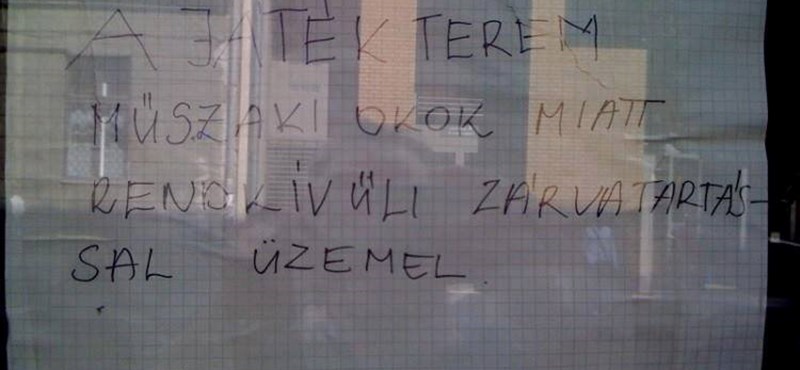 A JÁTÉK TEREM
MŰSZAKI OKOK MIATT
RENDKÍVŰLI ZÁRVATARTÁS-
SAL ÜZEMEL.